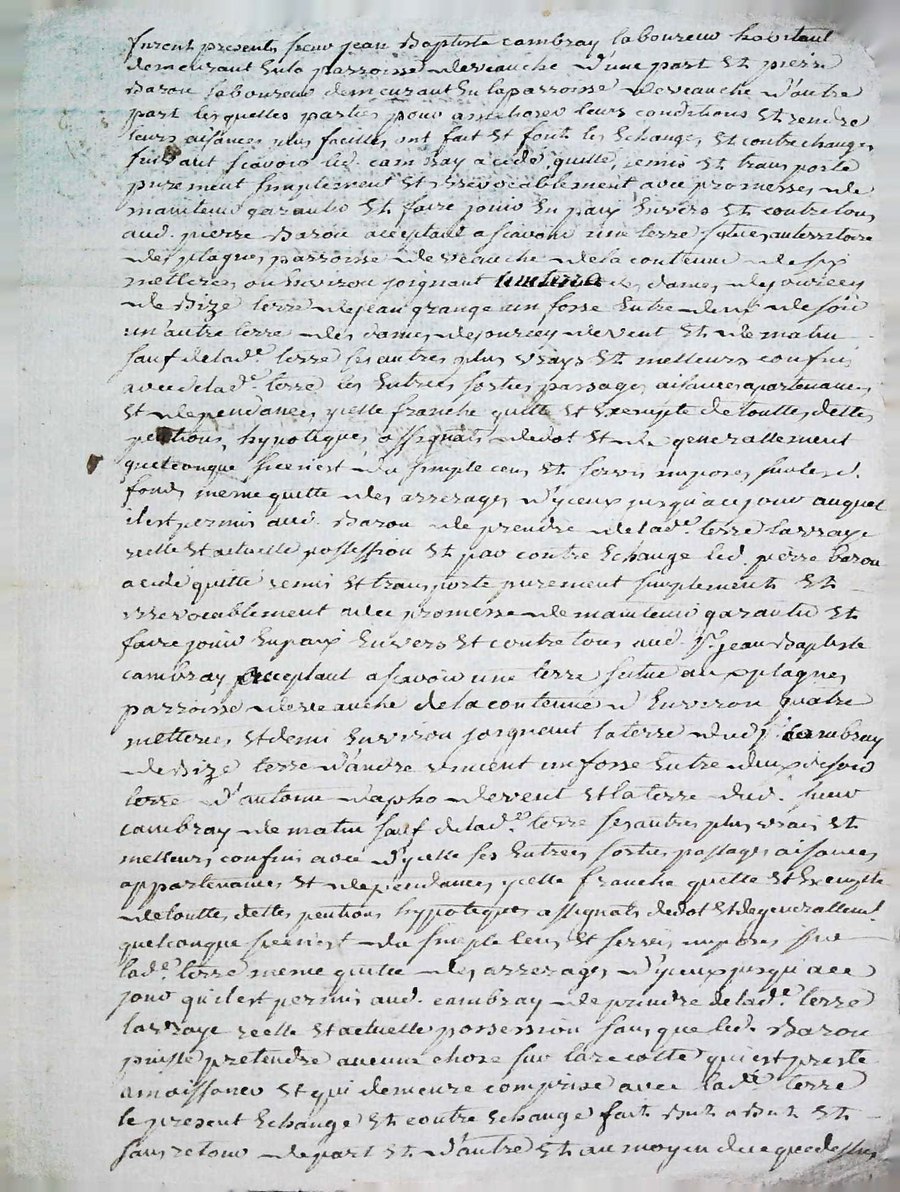 furent presents sieur jean Baptiste cambray laboureur habitant
demeurant en la parroisse de veauche d'une part Et pierre
Barou laboureur demeurant En la parroisse de veauche d'autre
part lesquelles parties pour ameliorer leurs conditions Et rendre
leurs aisances plus facilles ont fait Et font les Echanges Et contrechanges
suivant scavoir led. cambray a cédé, quitté, remis Et transporté
purement simplement Et irrevocablement avec promesses de
maintenir garantir Et faire jouir En paix Envers Et contre tous
aud. pierre Barou acceptant a scavoir une terre située au territoire
des plagnes parroisse de veauche de la contenue de six
metterées ou Environ joignant les dames de jourcey
de Bize terre de jean grange un fossé Entre deux de soir
un'autre terre des dames de jourcey de vent Et de matin
sauf de lad.e terre ses autres plus vrays Et melleurs confins
avec de lad.e terre les Entrées sorties passages aisances apartenances
Et dependances ycelle franche quitte Et Exempte de touttes dettes
pentions, hypoteques, assignats de dot Et de generallement
quelconque si ce n'est du simple cens Et servis imposés sur led.
fonds meme quitte des arrerages d'yceux jusqu'a ce jour auquel
il est permis aud. Barou de prendre de lad.e terre la vraye
reelle Et actuelle possession Et par contre Echange led. pierre barou
a cédé quitté remis Et transporté purement simplement Et
irrevocablement avec promesse de maintenir garantir Et
faire jouir En paix Envers Et contre tous aud. Sr. jean Baptiste
cambray acceptant a scavoir une terre située aux plagnes
parroisse de veauche de la contenue d'Environ quatre
metterées Et demi Environ joignant la terre dud. Sr cambray
de Bize terre d'andré vincent un fossé Entre deux de soir
terre d'antoine dapho de vent Et la terre dud. sieur
cambray de matin sauf de lad.e terre ses autres plus vrais Et
melleurs confins avec d'ycelle ses Entrées sorties passages aisances
appartenances Et dependances ycelle franche quitte Et Exempte
de touttes dettes pentions hypoteques assignats de dot Et de generallement
quelconque si ce n'est du simple cens Et servis imposés sur
lad.e terre meme quitte des arrerages d'yceux jusqu'a ce
jour qu'il est permis aud. cambray de prendre de lad.e terre
la vraye reelle Et actuelle possession sans que led. Barou
puisse pretendre aucune chose sur la recolte qui est preste
a moissoner Et qui demeure comprise avec lad.e terre
le present Echange Et contre Echange fait But a But Et
sans retour de part Et d'autre Et au moyen de ce que dessus